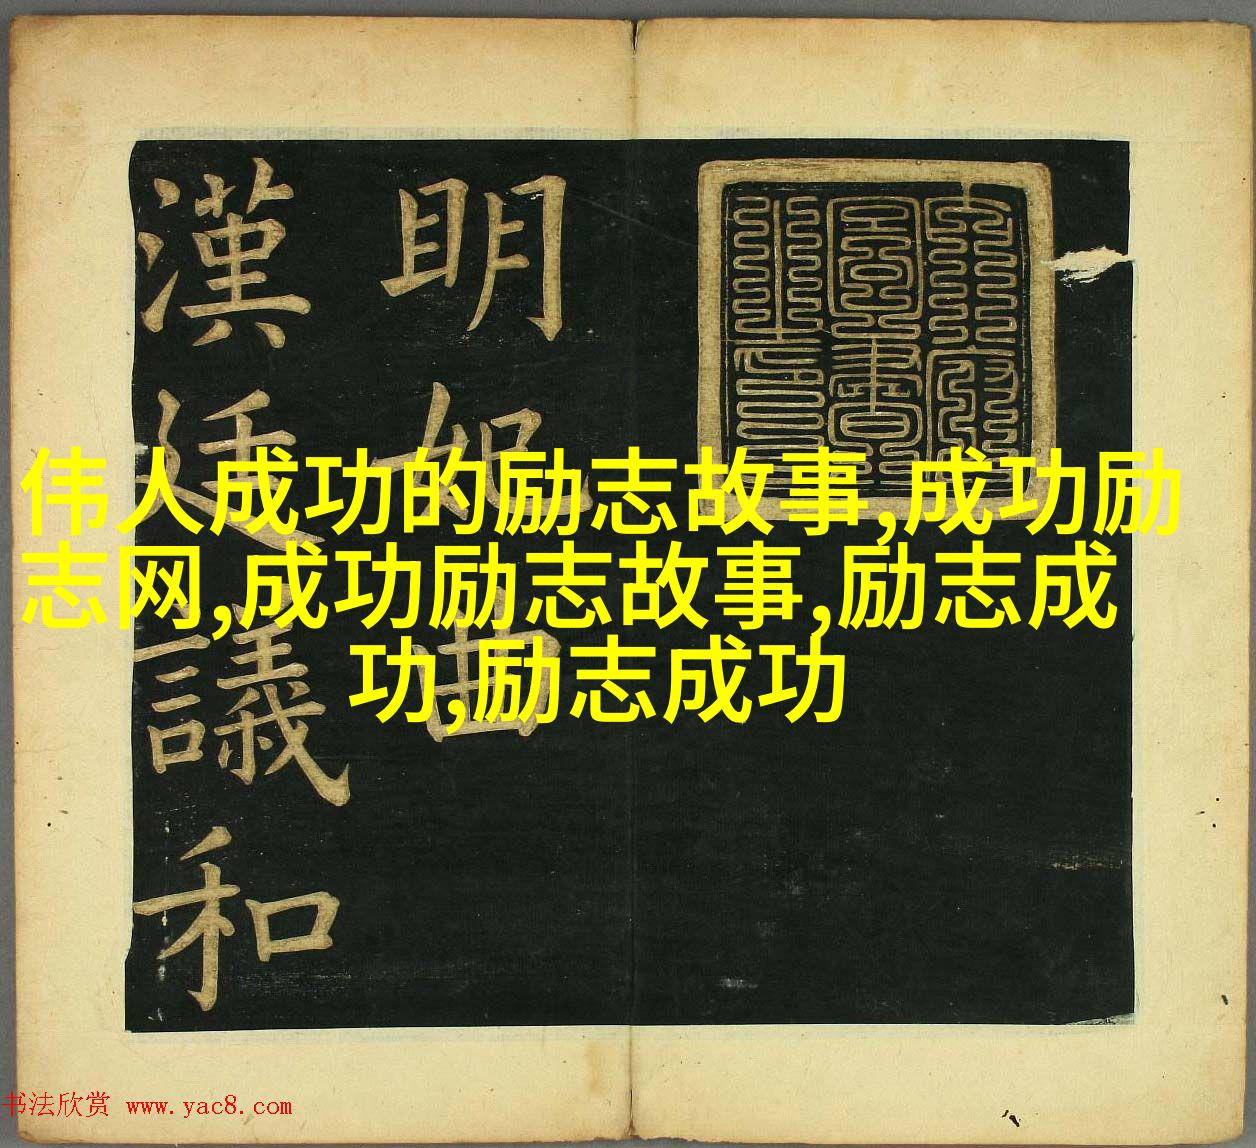 伟人成功的励志故事,成功励
志网,成功励志故事,励志成
功,励志成功
明妃曲
漢廷議和
书法欣赏 www.yac8.com